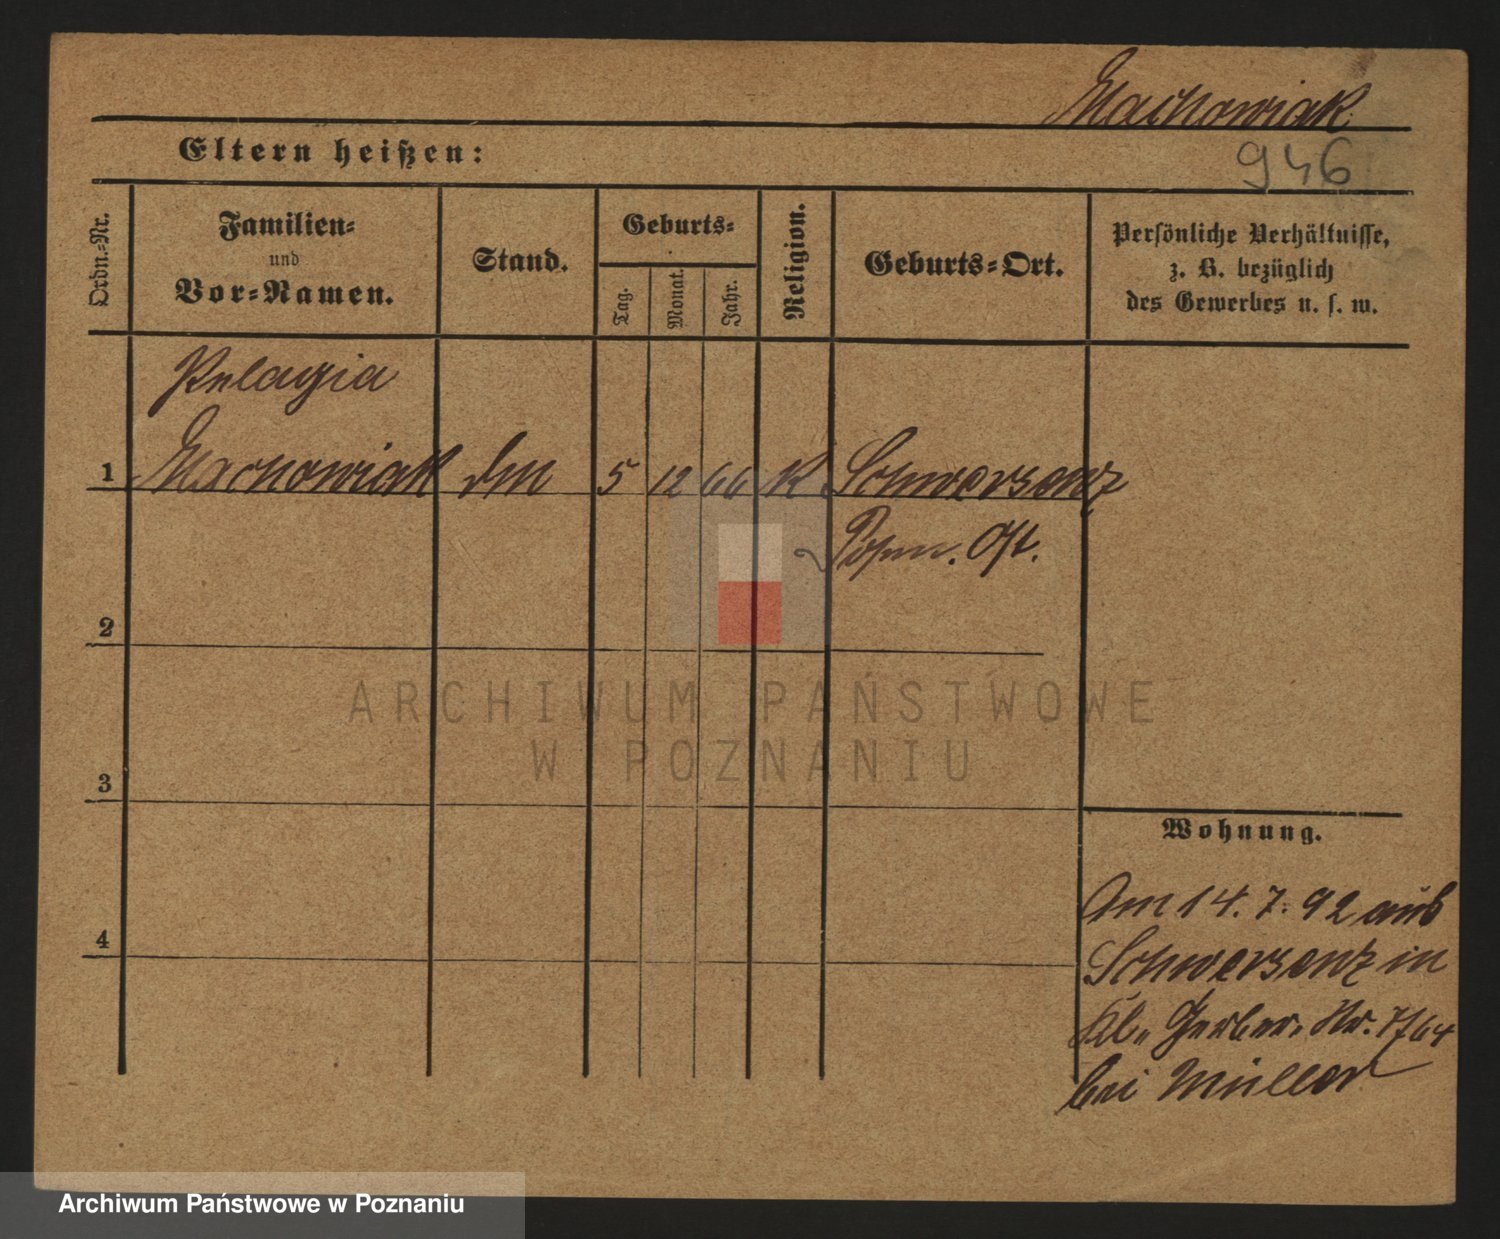 Machowiak
Eltern heißen:
946
Ordn.-Nr.
Familien-
und
Vor-Namen.
Stand.
Geburts-
Tag.
Monat.
Jahr.
Religion.
Geburts-Ort.
Persönliche Verhältnisse,
z. B. bezüglich
des Gewerbes u. s. w.
Pelagia
1 Machowiak 5 12 66 K Schwersenz
Posen. Ost.
2
3
4
Wohnung.
Am 14. 7. 92 aus
Schwersenz in
Kl. Gerber. Nr. 7/64
bei Müller
ARCHIWUM PAŃSTWOWE
W POZNANIU
Archiwum Państwowe w Poznaniu